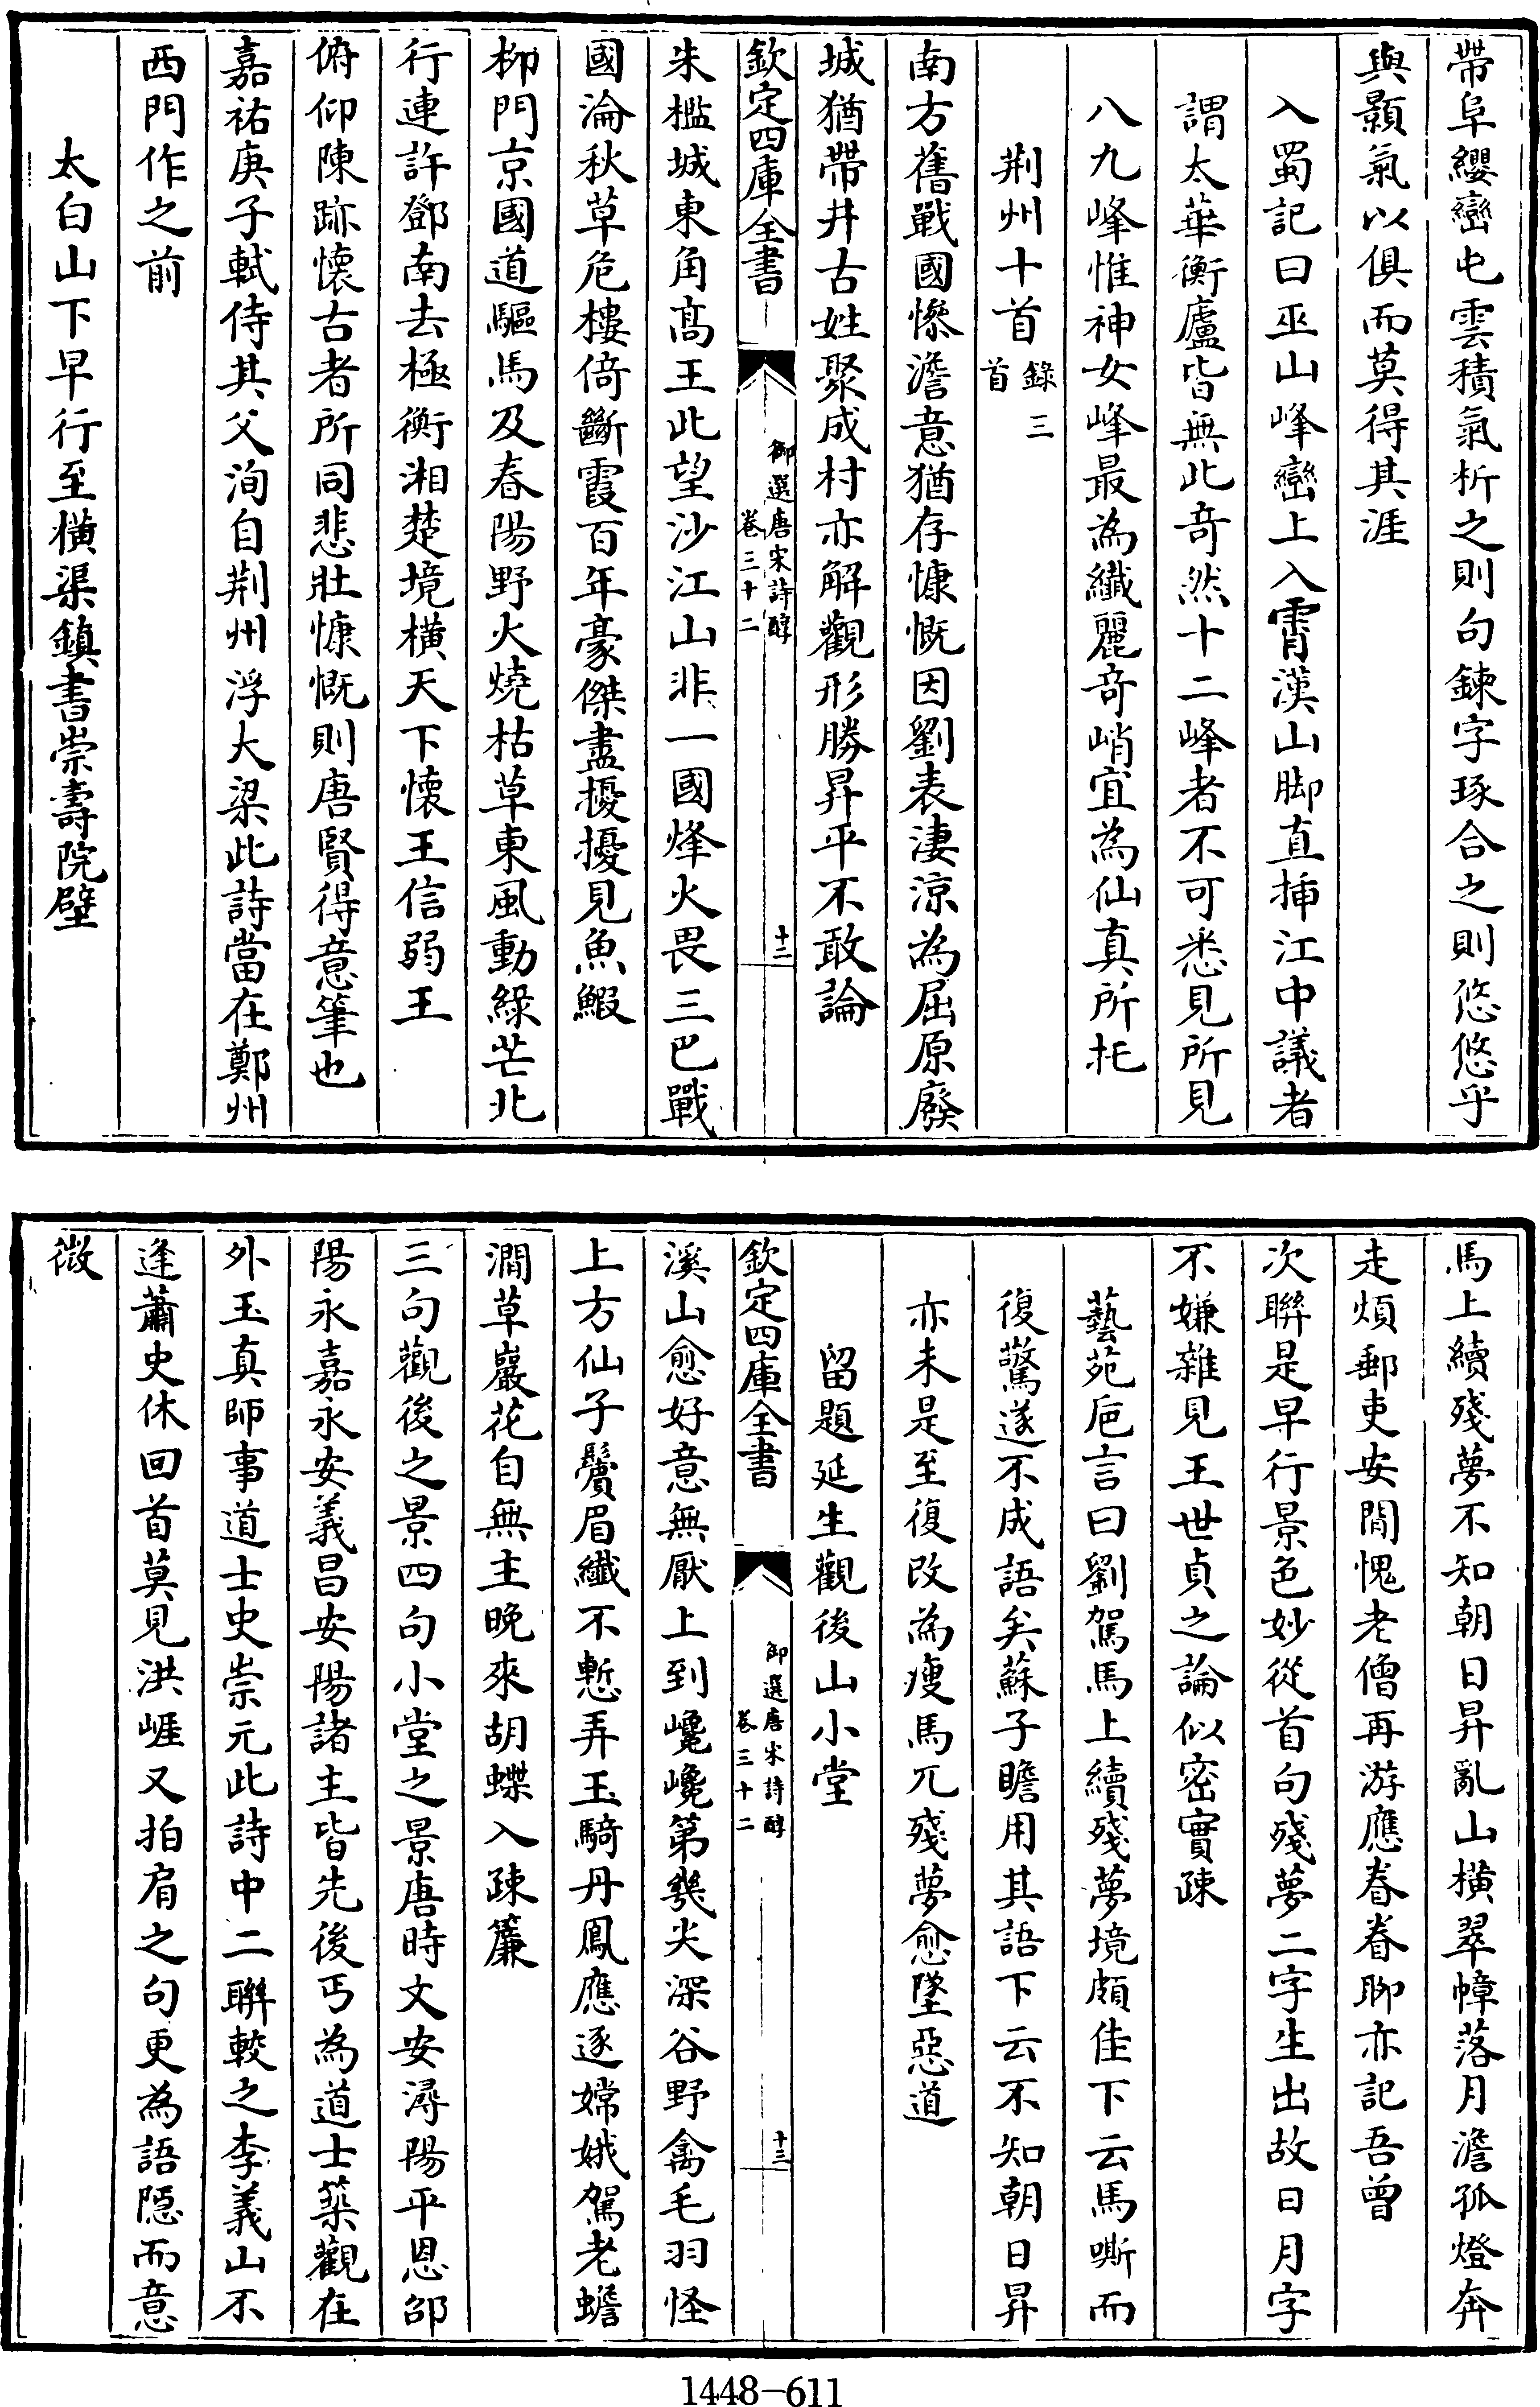 帶阜纓巒屯雲積氣析之則句鍊字琢合之則悠悠乎
與顥氣以俱而莫得其涯
入蜀記曰巫山峰巒上入霄漢山脚直揷江中議者
謂太華衡廬皆無此奇然十二峰者不可悉見所見
八九峰惟神女峰最為纖麗奇峭宜為仙真所托
荆州十首錄三首
南方舊戰國慘澹意猶存慷慨因劉表淒涼為屈原廢
城猶帶井古姓聚成村亦解觀形勝昇平不敢論
欽定四庫全書
御選唐宋詩醇
卷三十二
十二
朱檻城東角高王此望沙江山非一國烽火畏三巴戰
國淪秋草危樓倚斷霞百年豪傑盡擾擾見魚鰕
柳門京國道驅馬及春陽野火燒枯草東風動綠芒北
行連許鄧南去極衡湘楚境橫天下懷王信弱王
俯仰陳跡懷古者所同悲壯慷慨則唐賢得意筆也
嘉祐庚子軾侍其父洵自荆州浮大梁此詩當在鄭州
西門作之前
太白山下早行至橫渠鎮書崇壽院壁
馬上續殘夢不知朝日昇亂山橫翠幛落月澹孤燈奔
走煩郵吏安閒愧老僧再游應眷眷聊亦記吾曾
次聯是早行景色妙從首句殘夢二字生出故日月字
不嫌雜見王世貞之論似密實疎
藝苑巵言曰劉駕馬上續殘夢境頗佳下云馬嘶而
復驚遂不成語矣蘇子瞻用其語下云不知朝日昇
亦未是至復改為瘦馬兀殘夢愈墜惡道
留題延生觀後山小堂
欽定四庫全書
御選唐宋詩醇
卷三十二
十三
溪山愈好意無厭上到巉巉第幾尖深谷野禽毛羽怪
上方仙子鬢眉纖不慙弄玉騎丹鳳應逐嫦娥駕老蟾
澗草巖花自無主晚來胡蝶入疎簾
三句觀後之景四句小堂之景唐時文安潯陽平恩邵
陽永嘉永安義昌安陽諸主皆先後丐為道士築觀在
外玉真師事道士史崇元此詩中二聯較之李義山不
逢蕭史休回首莫見洪崕又拍肩之句更為語隱而意
微
1448-611